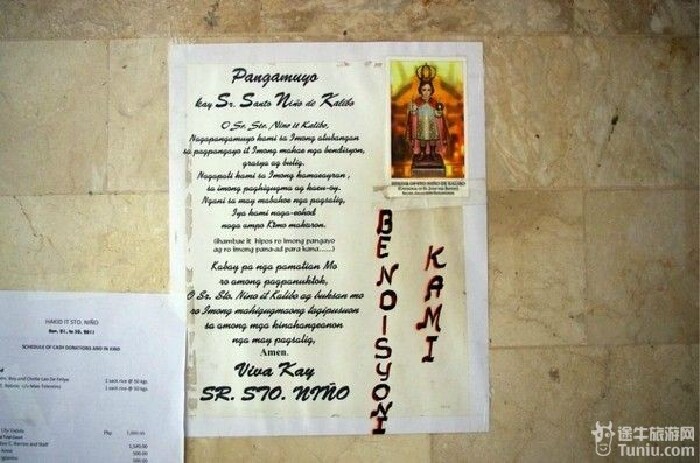 Pangamuyo
kay Sr. Santo Niño de Kalibo
O Sr. Sto. Nino it Kalibo,
Nagapangamuyo kami sa Imong atubangan
sa pagpangayo it Imong mahae nga bendisyon,
grasya ag bisig.
Nagapati kami sa Imong kamaeayran,
sa imong paghigugma ag kaeu-oy.
Ngani sa may mabahoe nga pagsalig,
Iya kami naga-eohod
naga ampo Kimo makaron.
(ihambae it hipos ro imong pangayo
ag ro imong pana-ad para kana.......)
Kabay pa nga pamatian Mo
ro among pagpanuktok,
O Sr. Sto. Nino it Kalibo ag buksan mo
ro Imong mahigugmaong tagipusuon
sa among mga kinahangeanon
nga may pagsalig,
Amen.
Viva Kay
SR. STO. NIÑO
BENDISYONI
KAMI
HAKOD IT STO. NIÑO
SCHEDULE OF CASH DONATIONS AND IN KIND
1 sack rice @ 50 kgs.
1 sack rice @ 50 kgs.
Php
500.00
500.00
途牛旅游网
Tuniu.com